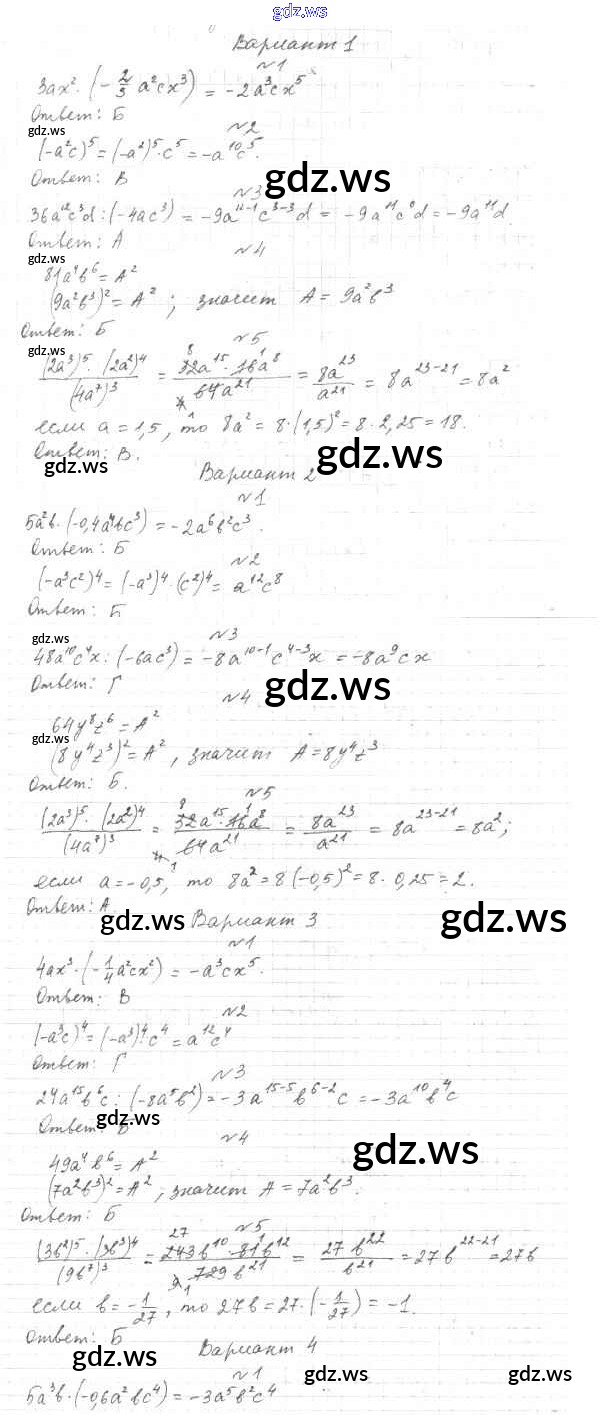 gdz.ws
Вариант 1
№1
3ax²·(-2/3 a²cx³) = -2a³cx⁵
Ответ: Б
gdz.ws
№2
(-a²c)⁵=(-a²)⁵·c⁵=-a¹⁰c⁵.
gdz.ws
Ответ: В
№3
36a¹²c³d:(-4ac³) = -9a¹²⁻¹c³⁻³d = -9a¹¹c⁰d=-9a¹¹d.
gdz.ws
Ответ: А
№4
gdz.ws
81a⁴b⁶=A²
(9a²b³)²=A²; значит A=9a²b³
gdz.ws
Ответ: Б
№5
gdz.ws
(2a³)⁵·(2a²)⁴/(4a⁷)³ = 32a¹⁵·16a⁸/64a²¹ = 8a²³/a²¹ = 8a²³⁻²¹=8a²
если a=1,5, то 8a²=8·(1,5)²=8·2,25=18.
Ответ: В.
gdz.ws gdz.ws
Вариант 2
№1
5a²b·(-0,4a⁴bc³)=-2a⁶b²c³.
Ответ: Б
№2
(-a³c²)⁴=(-a³)⁴·(c²)⁴=a¹²c⁸
Ответ: Б
№3
gdz.ws
48a¹⁰c⁴x:(-6ac³)=-8a¹⁰⁻¹c⁴⁻³x=-8a⁹cx
Ответ: Г
gdz.ws
№4
64y⁸z⁶=A²
gdz.ws
(8y⁴z³)²=A², значит A=8y⁴z³
Ответ: Б.
№5
(2a³)⁵·(2a²)⁴/(4a⁷)³ = 32a¹⁵·16a⁸/64a²¹ = 8a²³/a²¹ = 8a²³⁻²¹=8a²;
если a=-0,5, то 8a²=8(-0,5)²=8·0,25=2.
Ответ: А
gdz.ws gdz.ws
Вариант 3
№1
4ax³·(-1/4a²cx²)=-a³cx⁵.
Ответ: В
№2
(-a³c)⁴=(-a³)⁴c⁴=a¹²c⁴
Ответ: Г
№3
24a¹⁵b⁶c:(-8a⁵b²)=-3a¹⁵⁻⁵b⁶⁻²c=-3a¹⁰b⁴c
gdz.ws
Ответ: В
№4
gdz.ws
49a⁴b⁶=A²
(7a²b³)²=A²; значит A=7a²b³.
Ответ: Б
№5
(3b²)⁵·(3b³)⁴/(9b⁷)³ = 243b¹⁰·81b¹²/729b²¹ = 27b²²/b²¹=27b²²⁻²¹=27b
если b=-1/27, то 27b=27·(-1/27)=-1.
Ответ: Б
gdz.ws
Вариант 4
№1
gdz.ws gdz.ws
5a³b·(-0,6a²bc⁴)=-3a⁵b²c⁴
gdz.ws